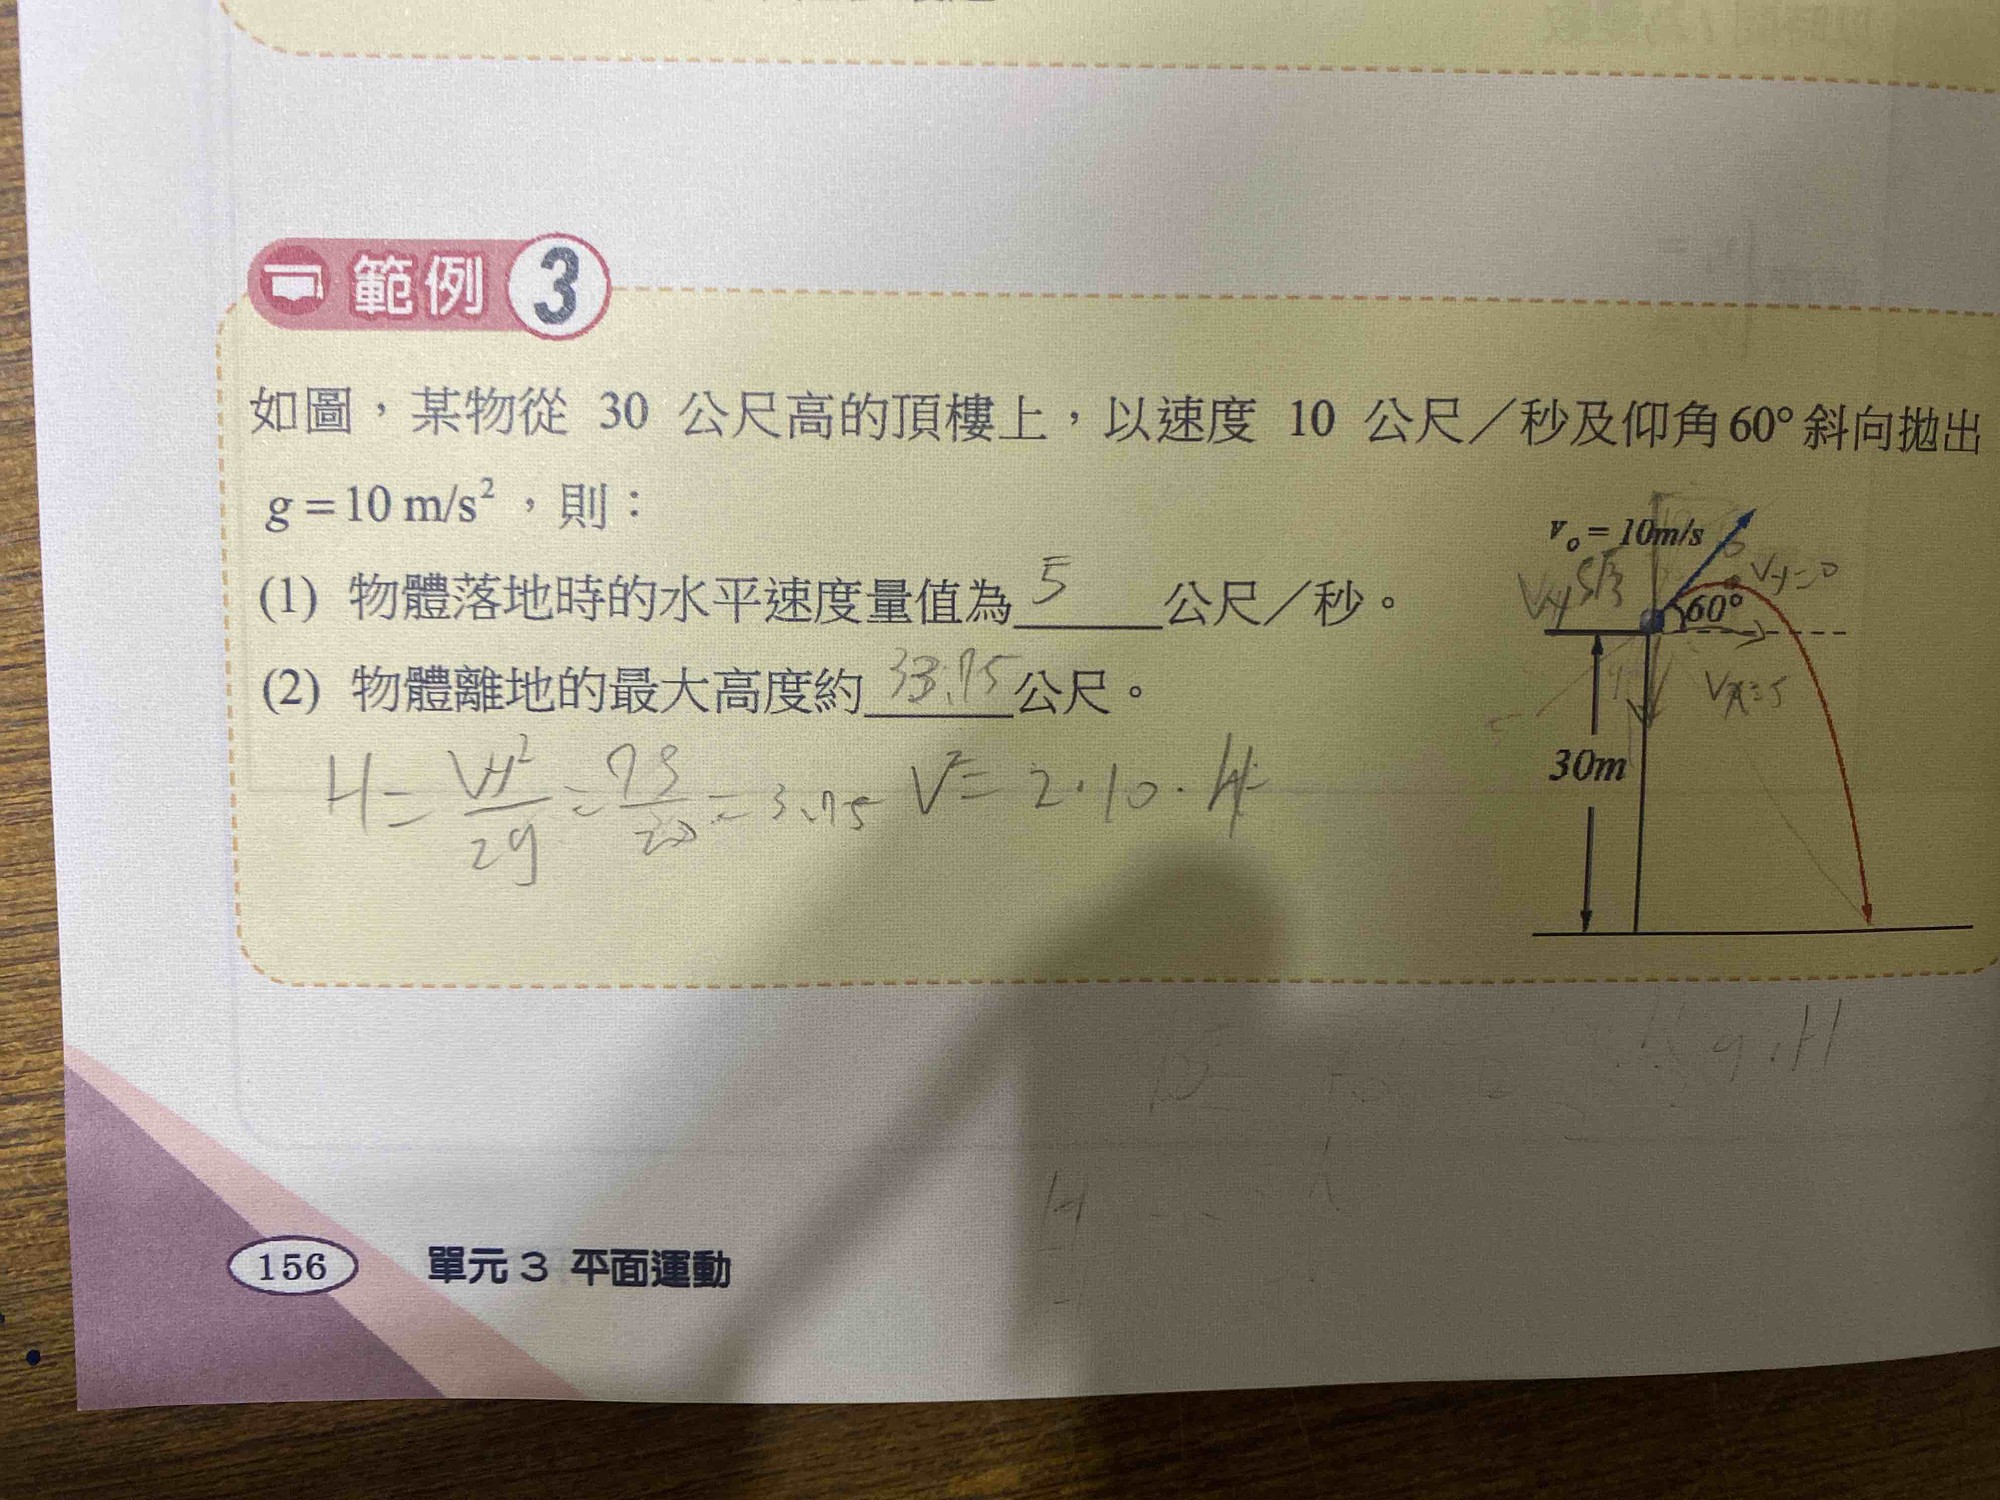 範例 3
如圖，某物從 30 公尺高的頂樓上，以速度 10 公尺／秒及仰角60°斜向拋出
g＝10 m/s²，則：
(1) 物體落地時的水平速度量值為 5 公尺／秒。
(2) 物體離地的最大高度約 33.75 公尺。
H = Vy²/2g = 75/20 = 3.75 V² = 2·10·H
v₀ = 10m/s
Vy 5√3
Vy=0
60°
Vx=5
30m
g.H
H
156 單元 3 平面運動